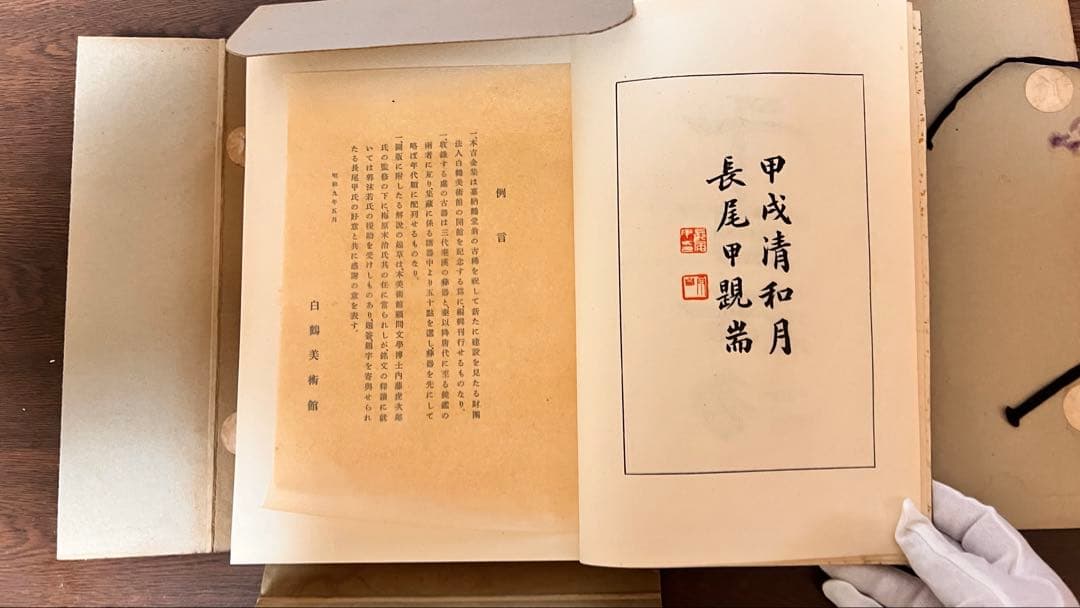 甲戌清和月
長尾甲題耑
例言
一、本吉金集は嘉納鶴堂翁の古稀を祝して新たに建設を見たる財團
法人白鶴美術館の開館を記念する爲に、編輯刊行せるものなり。
一、收錄する處の古器は三代秦漢の彝器と、秦以降唐代に至る鏡鑑の
兩者に亙り、集藏に係る諸器中より五十點を選し、彝器を先にして
略ぼ年代順に配列せるものなり。
一、圖版に附したる解說の起草は本美術館顧問文學博士內藤虎次郎
氏の監修の下に、梅原末治氏其の任に當られしが、銘文の釋讀に就
いては郭沫若氏の援助を受けしものあり、題簽、題字を寄與せられ
たる長尾甲氏の好意と共に感謝の意を表す。
昭和九年五月
白鶴美術館